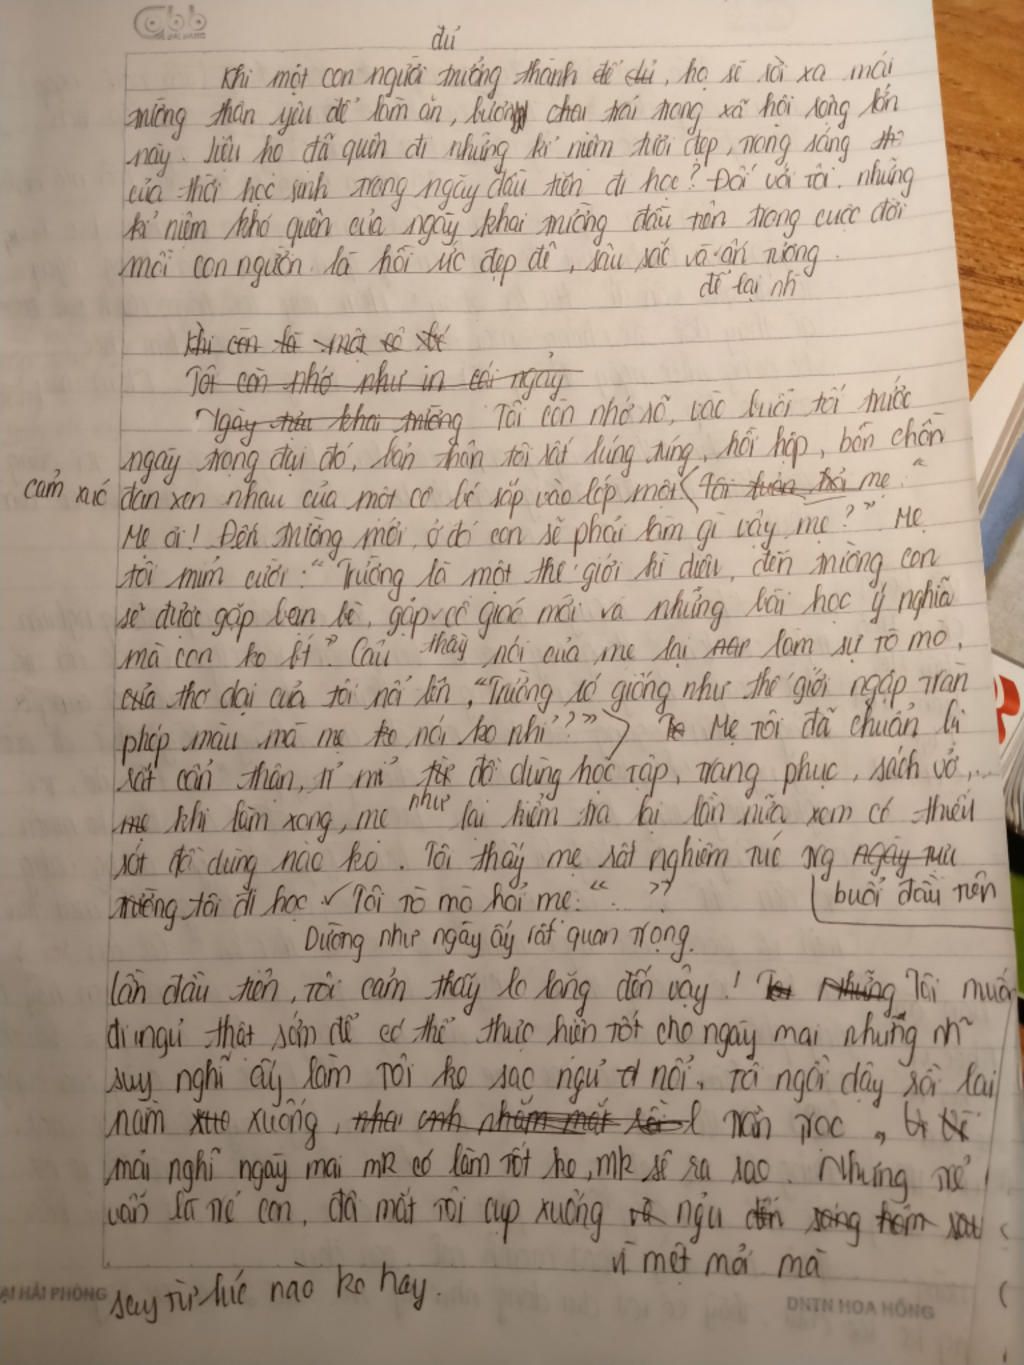 đủ
Khi một con người trưởng thành để đủ, họ sẽ rời xa mái
trường thân yêu để làm ăn, bươn chải trong xã hội rộng lớn
này. Liệu họ đã quên đi những kỉ niệm tươi đẹp, trong sáng
của thời học sinh trong ngày đầu tiên đi học? Đối với tôi, những
kỉ niệm khó quên của ngày khai trường đầu tiên trong cuộc đời
mỗi con người là hồi ức đẹp đẽ, sâu sắc và ấn tượng.
để lại nh
Khi còn là một cô bé
Tôi còn nhớ như in cái ngày
Ngày khai trường Tôi còn nhớ rõ, vào buổi tối trước
ngày trọng đại đó, bản thân tôi rất lúng túng, hồi hộp, bồn chồn
cảm xúc đan xen nhau của một cô bé sắp vào lớp một (Tôi mẹ: "
Mẹ ơi! Đến trường mới, ở đó con sẽ phải làm gì vậy mẹ?". Mẹ
tôi mỉm cười: "Trường là một thế giới kì diệu, đến trường con
sẽ được gặp bạn bè, gặp cô giáo mới và những bài học ý nghĩa
mà con ko bt". Câu nói của mẹ lại làm sự tò mò,
của thơ dại của tôi nổi lên, "Trường có giống như thế giới ngập tràn
phép màu mà mẹ ko nói ko nhỉ?") Mẹ tôi đã chuẩn bị
rất cẩn thận, tỉ mỉ từ đồ dùng học tập, trang phục, sách vở,...
mẹ khi làm xong, mẹ như lại kiểm tra lại lần nữa xem có thiếu
sót đồ dùng nào ko. Tôi thấy mẹ rất nghiêm túc trg ngày tựu
trường tôi đi học ✓ Tôi tò mò hỏi mẹ: "... ?"
buổi đầu tiên
Dường như ngày ấy rất quan trọng.
Lần đầu tiên, tôi cảm thấy lo lắng đến vậy! Tôi Những Tôi muốn
đi ngủ thật sớm để có thể thực hiện tốt cho ngày mai nhưng nh
suy nghĩ ấy làm tôi ko sao ngủ nổi. Tôi ngồi dậy rồi lại
nằm xuống, nhắm mắt rồi trằn trọc,
mải nghĩ ngày mai mk có làm tốt ko, mk sẽ ra sao. Nhưng trẻ
vẫn là trẻ con, đôi mắt tôi cụp xuống và ngủ đến sáng hôm sau
vì mệt mỏi mà
say từ lúc nào ko hay.
ĐẠI HẢI PHÒNG
DNTN HOA HỒNG